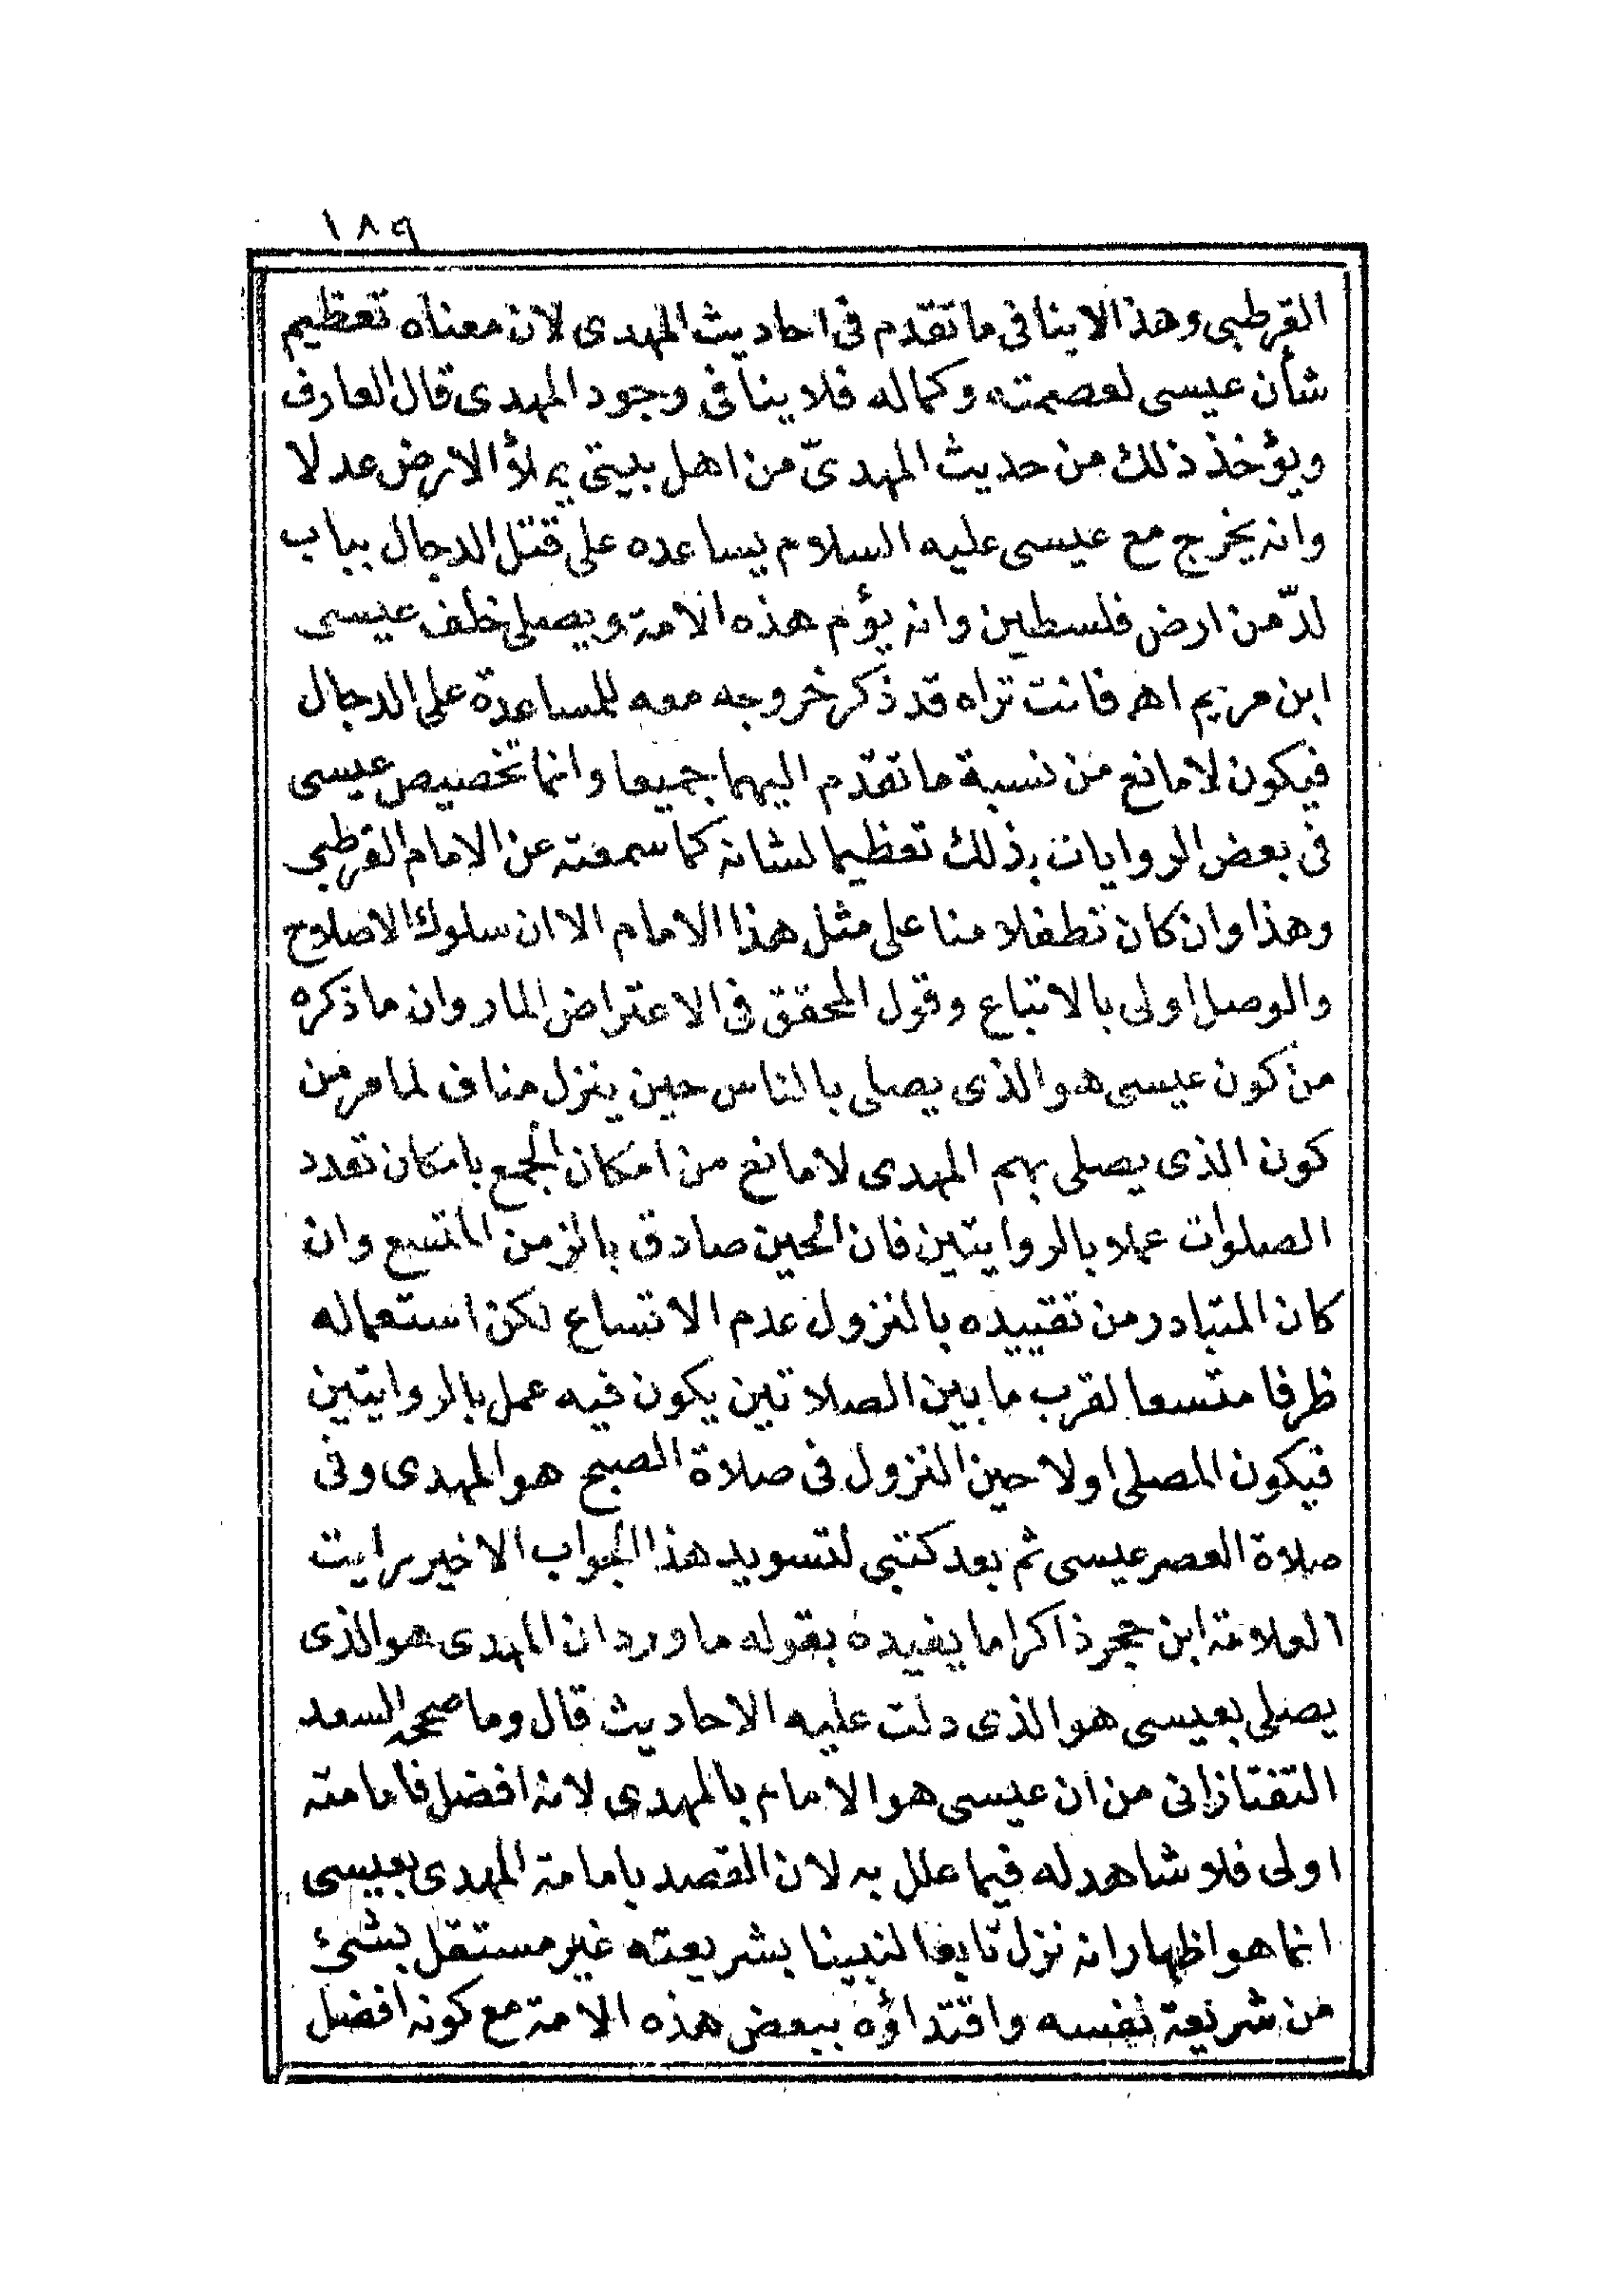 ١٨٩
القرطبى وهذا لا ينافى ما تقدم فى احاديث المهدى لان معناه تعظيم
شأن عيسى لعصمته وكماله فلا ينافى وجود المهدى قال العارف
ويؤخذ ذلك من حديث المهدىّ من اهل بيتى يملاؤ الارض عدلا
وانه يخرج مع عيسى عليه السلام يساعده على قتل الدجال بباب
لدّ من ارض فلسطين وانه يؤم هذه الامة ويصلى خلف عيسى
ابن مريم اهـ فانت تراه قد ذكر خروجه معه للمساعدة على الدجال
فيكون لا مانع من نسبة ما تقدّم اليهما جميعا وانما تخصيص عيسى
فى بعض الروايات بذلك تعظيما لشانه كما سمعته عن الامام القرطبى
وهذا وان كان تطفلا منا على مثل هذا الامام الا ان سلوك الاصلاح
والوصل اولى بالاتباع وقول المحقق فى الاعتراض المار وان ما ذكره
من كون عيسى هو الذى يصلى بالناس حين ينزل مناف لما مر من
كون الذى يصلى بهم المهدى لا مانع من امكان الجمع بامكان تعدد
الصلوات عملا بالروايتين فان الحين صادق بالزمن المتسع وان
كان المتبادر من تقييده بالنزول عدم الاتساع لكن استعماله
ظرفا متسعا لقرب ما بين الصلاتين يكون فيه عمل بالروايتين
فيكون المصلى اولا حين النزول فى صلاة الصبح هو المهدى وفى
صلاة العصر عيسى ثم بعد كتبى لتسويد هذا الجواب الاخير رايت
العلامة ابن حجر ذاكرا ما يفيده بقوله ما ورد ان المهدى هو الذى
يصلى بعيسى هو الذى دلت عليه الاحاديث قال وما صححه السعد
التفتازانى من ان عيسى هو الامام بالمهدى لانه افضل فامامته
اولى فلا شاهد له فيما علل به لان القصد بامامة المهدى بعيسى
انما هو اظهار انه نزل تابعا لنبينا بشريعته غير مستقل بشئ
من شريعة نفسه واقتداؤه ببعض هذه الامة مع كونه افضل